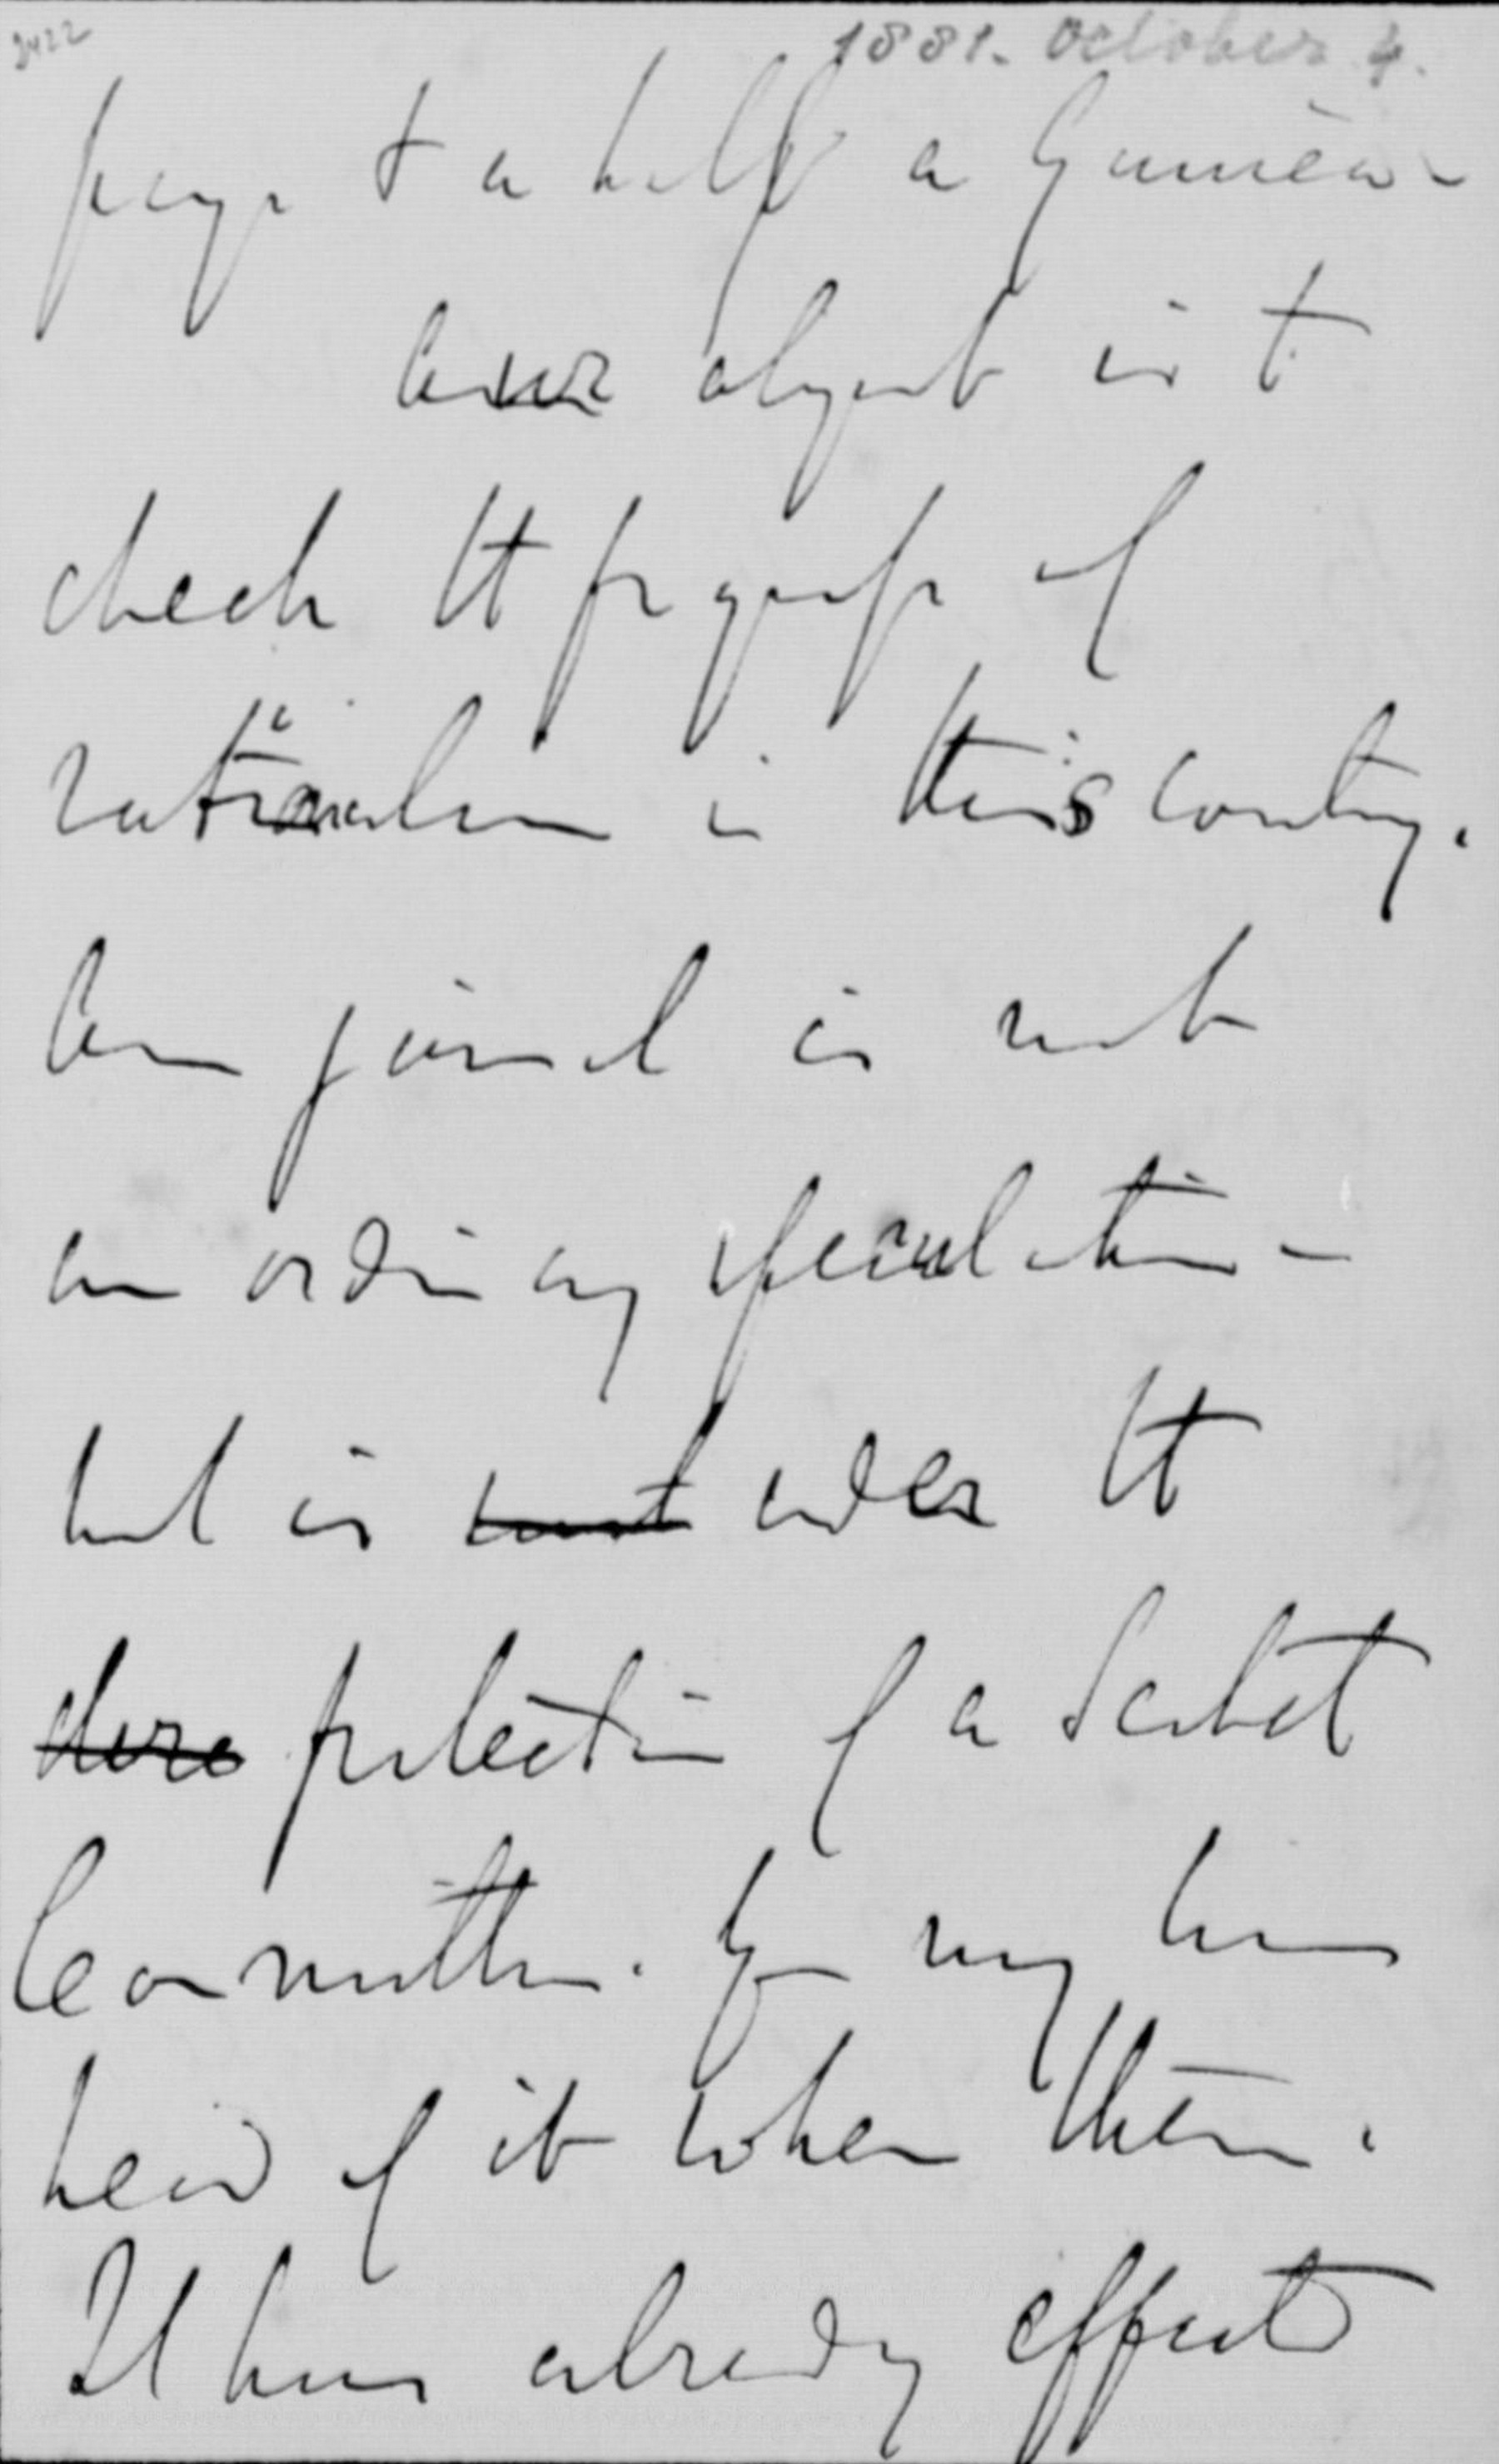 2422 1881. October 4.
page & a half a Guinea -
Our object is to
check the progress of
rationalism in this country.
Our journal is not
an ordinary speculation -
but is under the
protection of a Select
Committee. You may have
heard of it when there.
It has already effected